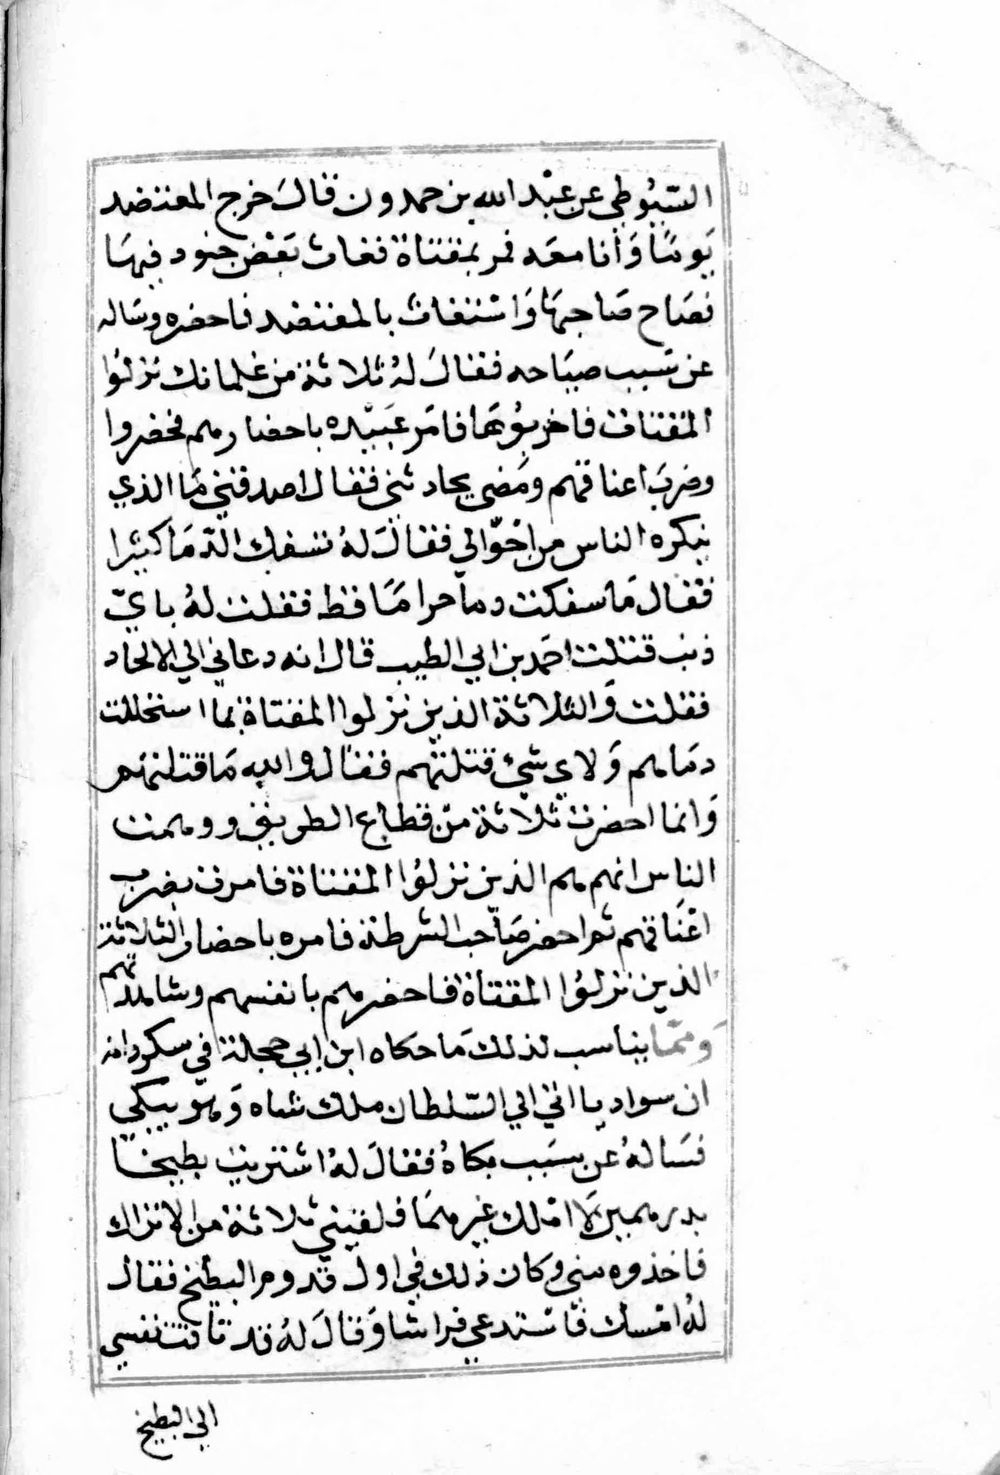 السّيُوطي عن عبْد الله بن حمدون قالَ خرج المعتضد
يَومًا وَأنا معَه فمر بمقثاة فعاث بَعْض جنوده فيهَا
فصَاح صَاحبهَا وَاسْتغاث بالمعتضد فاحضره وسَاله
عن سَبب صيَاحه فقالَ لهُ ثلاثة من غلمانك نزلوُا
المقثاة فاخربوُهَا فامَر عَبيْده باحضارهم فحضروا
وضربَ اعناقهم ومَضى يحادثني فقال اصدقني مَا الذي
ينكره الناس من احْوَالي فقالَ لهُ تسفك الدّمَا كثيرًا
فقال مَا سفكت دمًا حرامًا قط فقلت لهُ بايّ
ذنب قتلت احمَد بن ابي الطيب قال انه دعاني الي الالحاد
فقلت وَالثلاثة الذين نزلوا المقثاة بما استحللت
دمَاهم وَلاي شئ قتلتهم فقال والله مَا قتلتهم
وَانما احضرت ثلاثة منْ قطاع الطريق ووهمت
الناس انهم هم الذين نزلوُا المقثاة فامرت بضرب
اعْنَاقهم ثم احضر صَاحب الشرطة فامره باحضار الثلاثة
الذين نزلوُا المقثاة فاحضرهم بانفسهم وشاهدتهم
وَممّا يناسب لذلك مَا حكاه ابن ابي حجلة في سكردانه
ان سواديا اتي الي السّلطان ملك شاه وَهو يبكي
فسَالهُ عن سَبب بكاهُ فقالَ لهُ اشتريت بطيخا
بدرهمين لَا امْلك غيرهمَا فلقيني ثلاثة من الاتراك
فاخذوه مني وكان ذلك في اول قدوم البطيخ فقال
لهُ امْسك فاسْتدعي فراشا وَقالَ لهُ قد تاقت نفسي
الي البطيخ